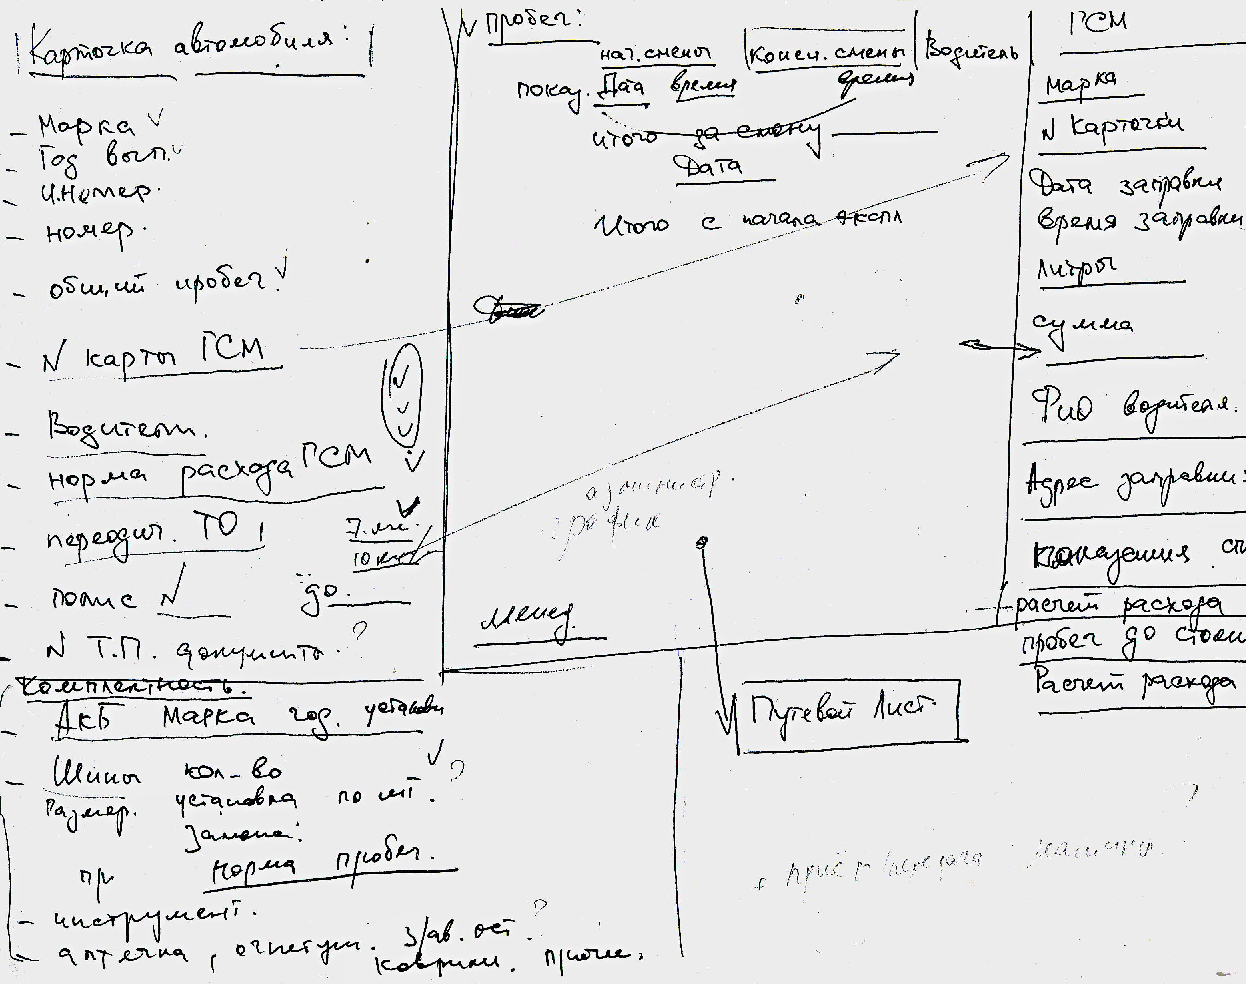 Карточка автомобиля:
- Марка
- Год вып.
- И.Номер.
- номер.
- общий пробег.
- N карты ГСМ
- Водители.
- норма расхода ГСМ
- переодич. ТО 7.
10
- полис N до.
- N Т.П. документа. ?
Комплектность.
- АКБ марка год. установки
- Шины кол-во ?
Размер. установка по
Замена:
пр норма пробег.
- инструмент.
- аптечка, огнетуш. з/ав. ост. ?
коврики. прочие.
Пробег:
нач.смены Конец.смены Водитель
показ. Дата время время
итого за смену
Дата
Итого с начала экспл
график
менед.
Путевой Лист.
+ приё передача машины ?
ГСМ
марка
N карточки
Дата заправки
время заправки
литры
сумма
ФИО водителя.
Адрес заправки:
показания
расчет расхода
пробег до
Расчет расхода